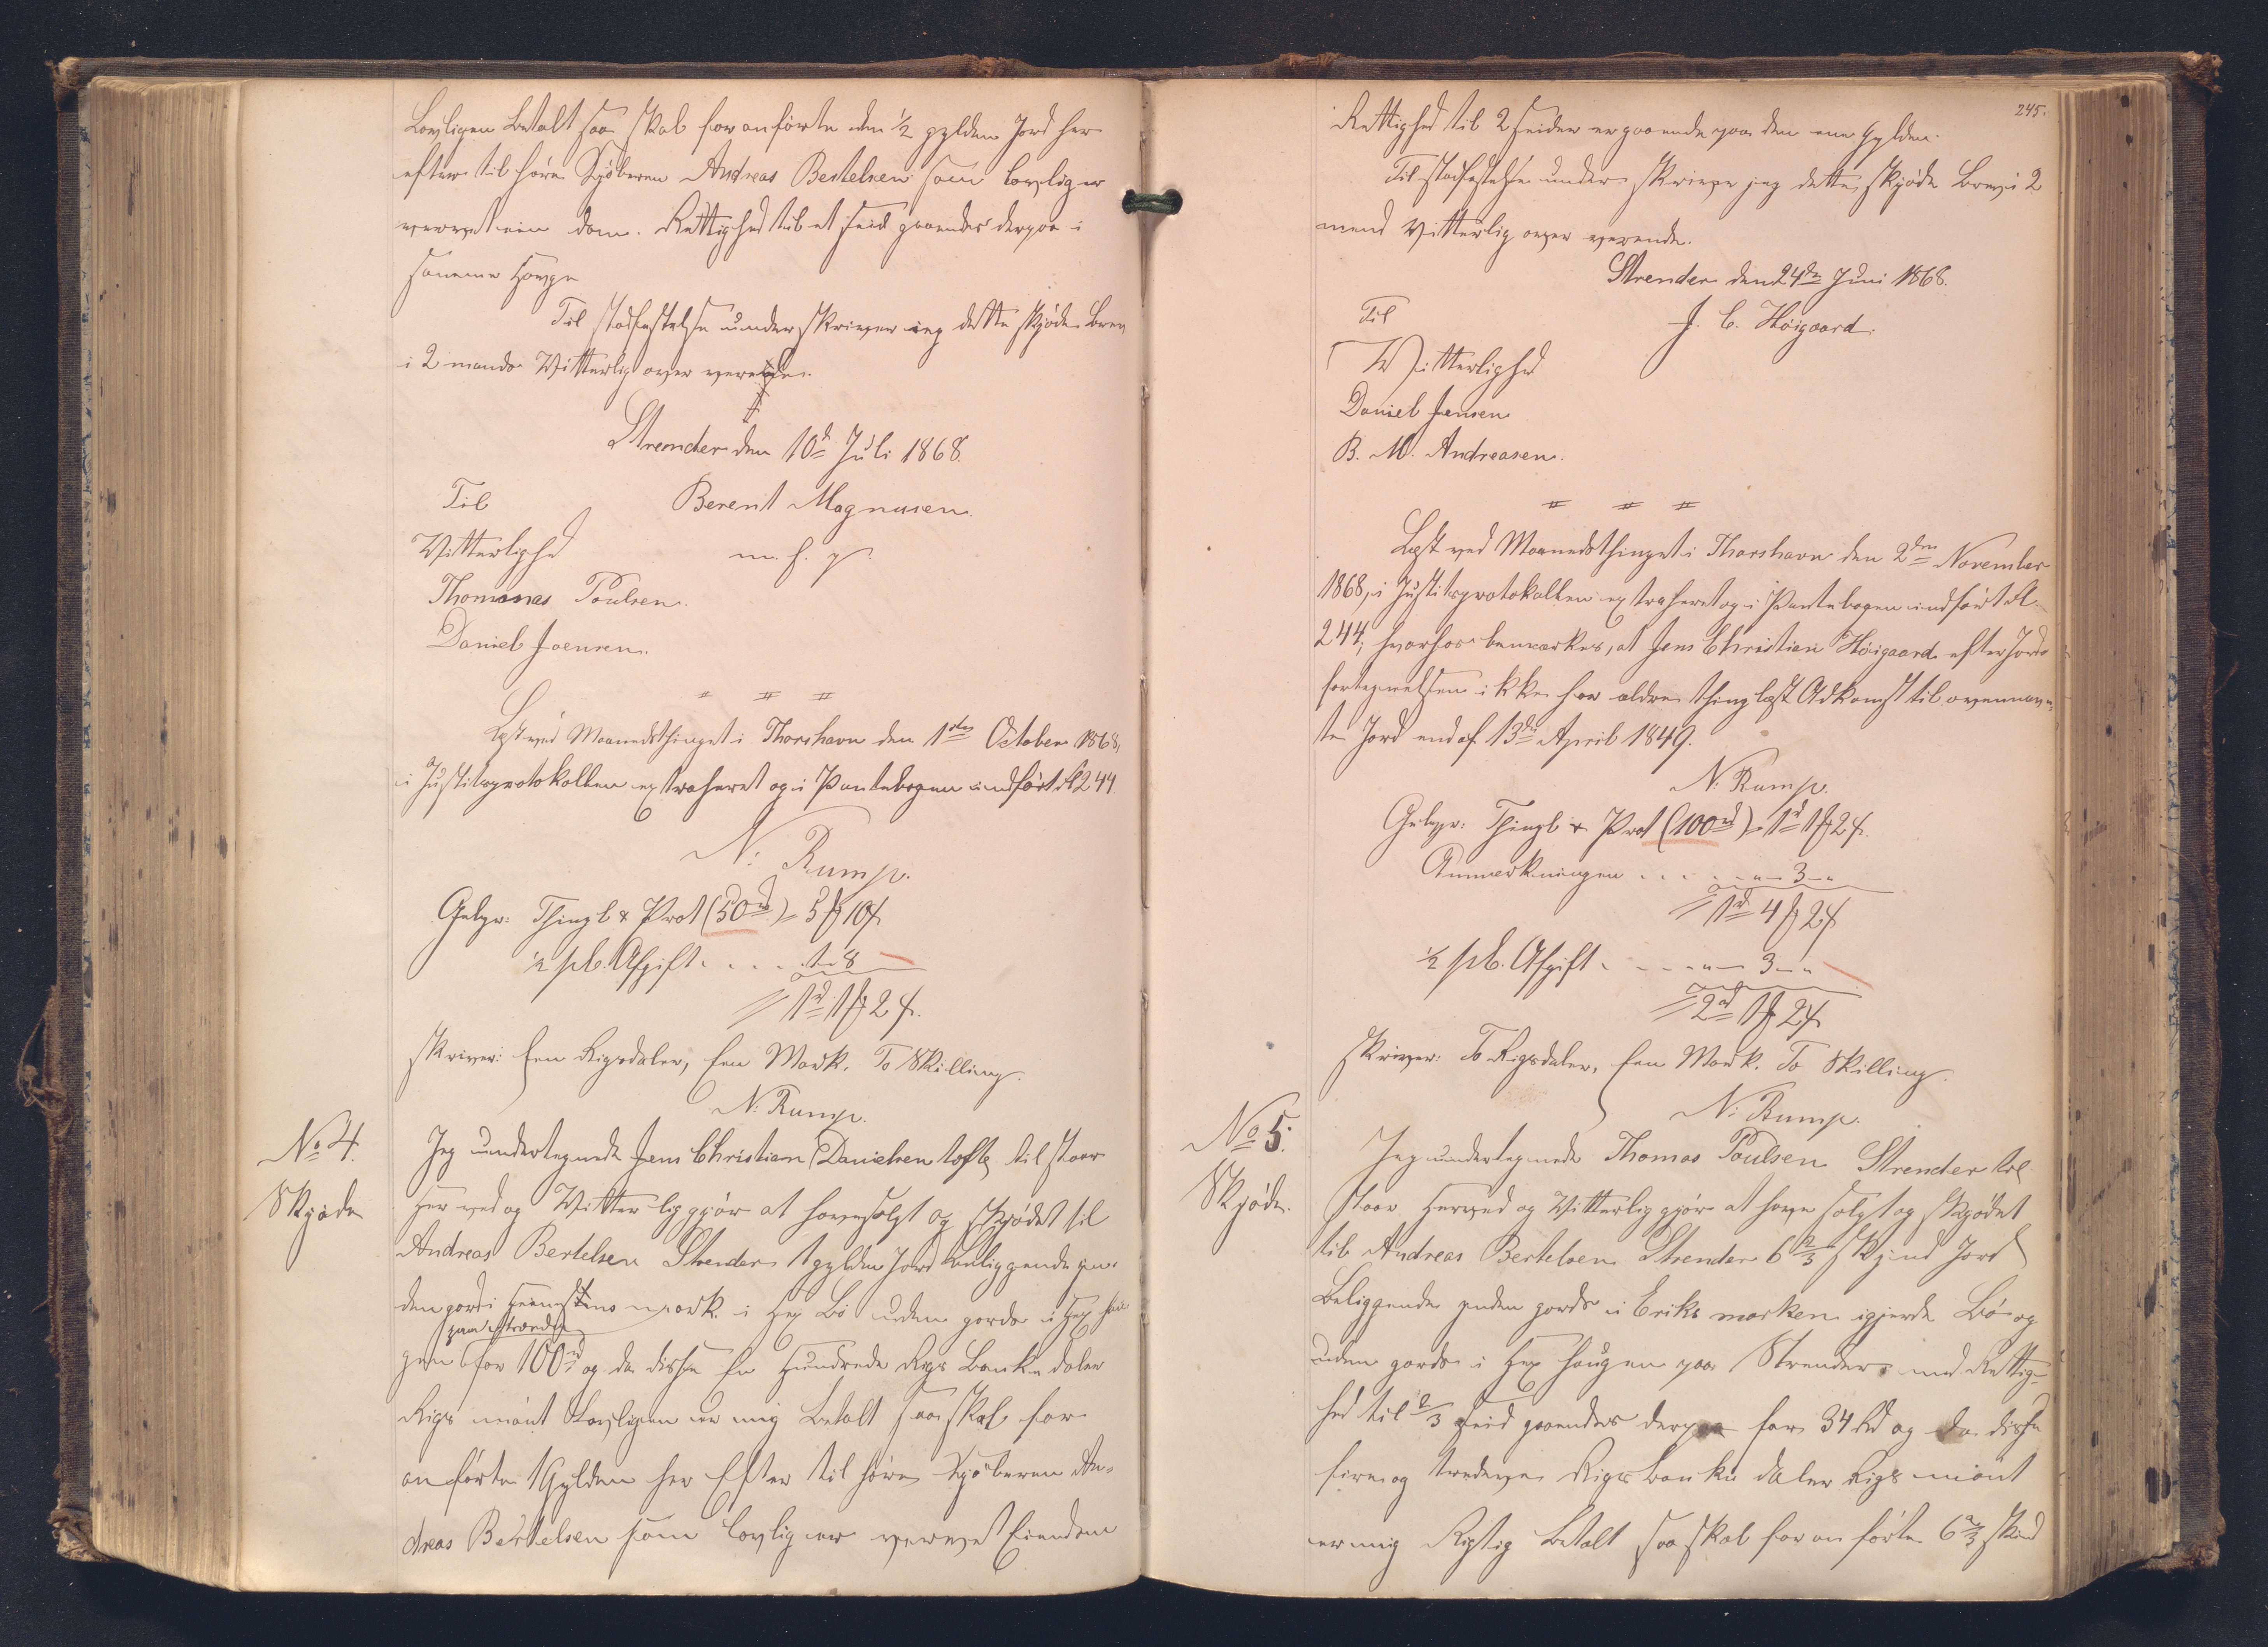 Lovligen Betalt saa skal foranførte den 1/2 gylden Jord her
efter til høre Kjøberen Andreas Bertelsen som Lovlig er
vervet eien dom. Rettighed til et seid gaaendes derpaa i
samme Houge
Til stadfæstelse underskriver ieg dette skjøde brev
i 2 mands Vitterlig over verelse.
Strender den 10d Juli 1868.
Til
Berent Magnusen
Vitterlighed
m. f. p.
Thomas Poulsen.
Daniel Joensen.
Læst ved Maanedsthinget i Thorshavn den 1ste October 1868,
i Justitsprotokollen extraheret og i Pantebogen indført Fol. 244.
N: Rump.
Gebyr: Thingl & Prot (50rd) = 5 ℳ 10 ß
1/2 pCt. Afgift . . . . 1 - 8
= 1rd 1ℳ 2ß.
skriver: Een Rigsdaler, Een Mark, To Skilling.
N: Rump.
No 4.
Skjøde
Jeg undertegnede Jens Christian Danielsen tofte til staar
Her ved og Vitter lig gjør at have solgt og skjødet til
Andreas Bertelsen Strender 1 gylden Jord beliggende in-
den gards i mark. i Hex Bø uden gards i Hex hau
paa Strender
gen for 100rd og da disse Et Hundrede Rigs Banke daler
Rigs mønt Lovligen er mig Betalt saa skal for
anførte 1 Gylden her Efter til høre Kjøberen An-
dreas Bertelsen som lovlig er vervet Eiendom
245.
Rettighed til 2 seider ergaaende paa den ene Gylden.
Til stadfæstelse under skriver jeg dette skjøde Brev i 2
mend Vitterlig over verende.
Strender den 24de Juni 1868.
Til
J. C. Høigaard.
Vitterlighed
Daniel Jensen
B. M. Andreasen.
Læst ved Maanedsthinget i Thorshavn den 2den November
1868, i Justitsprotokollen extraheret og i Pantebogen indført Fol.
244, hvorhos bemærkes, at Jens Christian Høigaard efter Jorde
fortegnelsen ikke har ældre thinglæst Adkomst til ovennævn-
te Jord end af 13de April 1849.
N: Rump.
Gebyr: Thingl & Prot (100rd) = 1rd 1ℳ 2ß.
Anmærkningen . . . . " - 3 - "
= 1rd 4ℳ 2ß
1/2 pCt. Afgift . . . . " - 3 - "
= 2rd 1ℳ 2ß
skriver: To Rigsdaler, Een Mark, To Skilling.
N: Rump.
No 5.
Skjøde.
Jeg undertegnede Thomas Poulsen Strender til
staar Herved og Vitterlig gjør at have solgt og skjødet
til Andreas Bertelsen Strender 6 2/3 skind Jord
Beliggende inden gards i Eriks marken igjerde Bø og
uden gards i Hex haugen paa Strender med Rettig-
hed til 2/3 seid gaaendes derpaa for 34 Rd og da disse
fire og tredeve Rigsbanke daler Rigs mønt
er mig Rigtig Betalt saa skal for an førte 6 2/3 skind